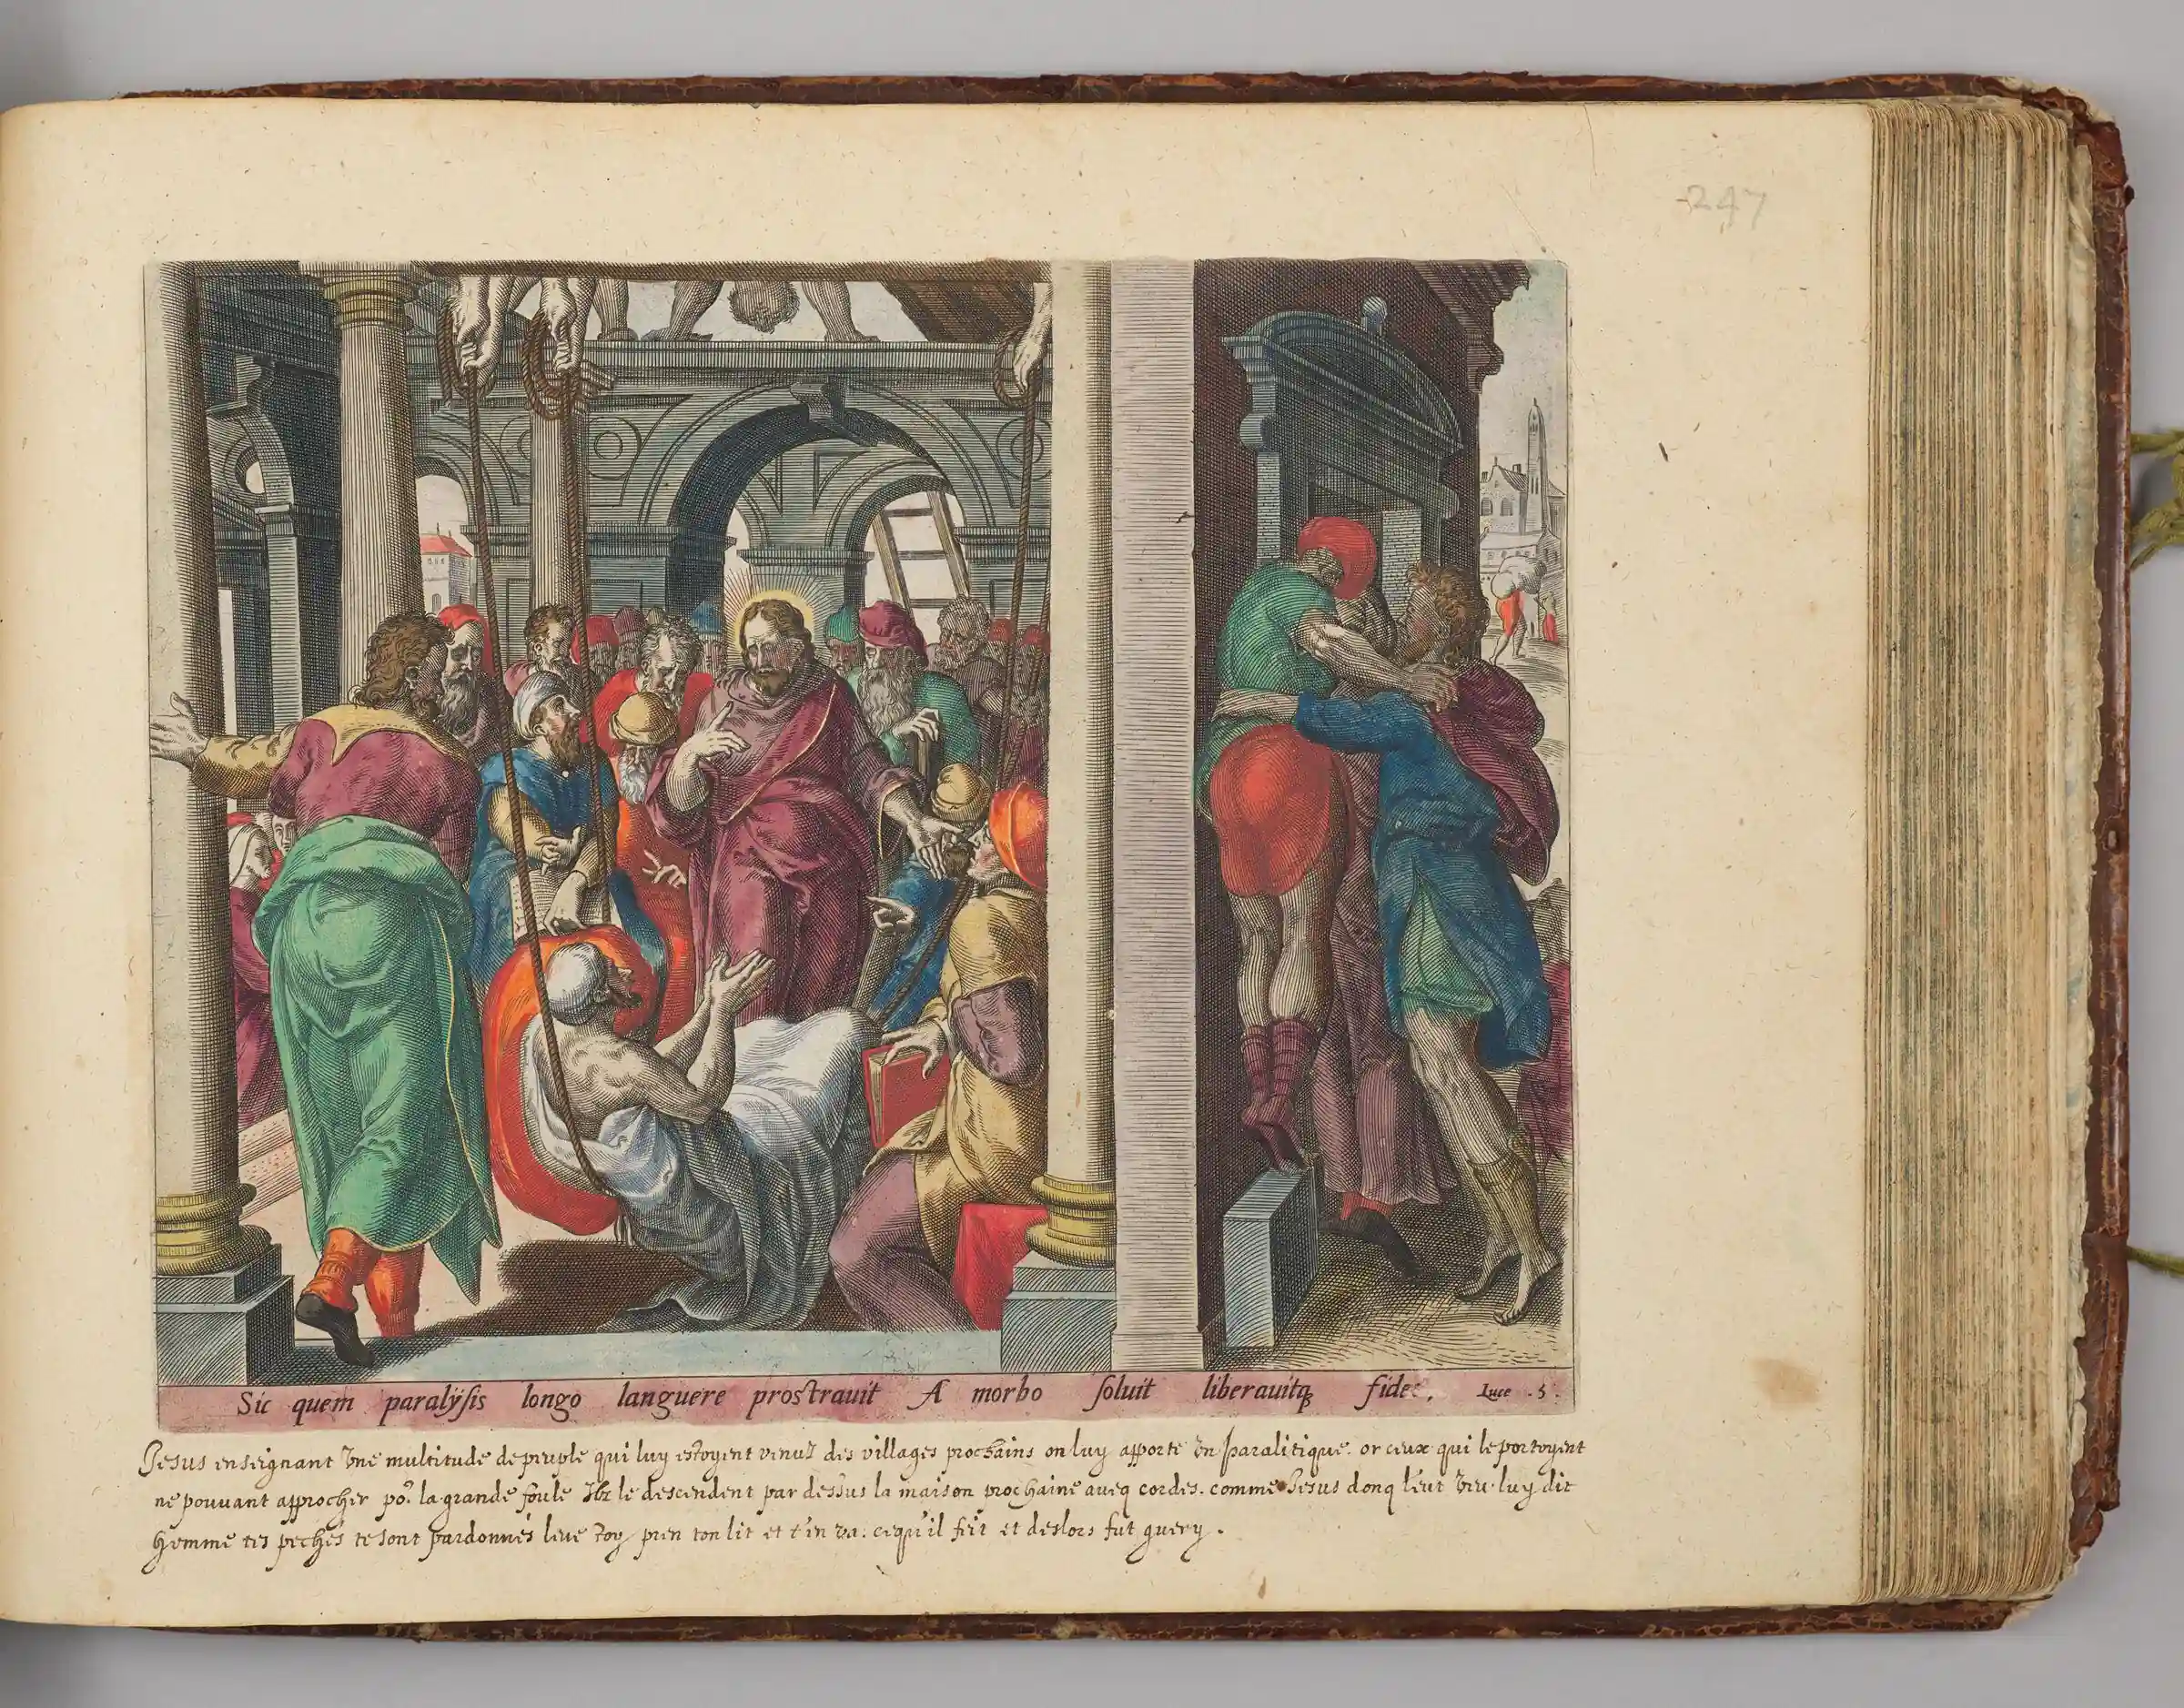 247
Sic quem paralÿsis longo languere prostrauit A morbo soluit liberauitqȝ fides. Luce .5.
Jesus enseignant vne multitude de peuple qui luy estoyent venuz des villages prochains on luy apporte vn paralitique. or ceux qui le portoyent
ne pouuant approcher po.r la grande foule Ilz le descendent par dessus la maison prochaine aueq cordes. comme Jesus donq l'eut veu luy dit
homme tes pechés te sont pardonnés leue toy pren ton lit et t'en va. cequ'il feit et deslors fut guery.